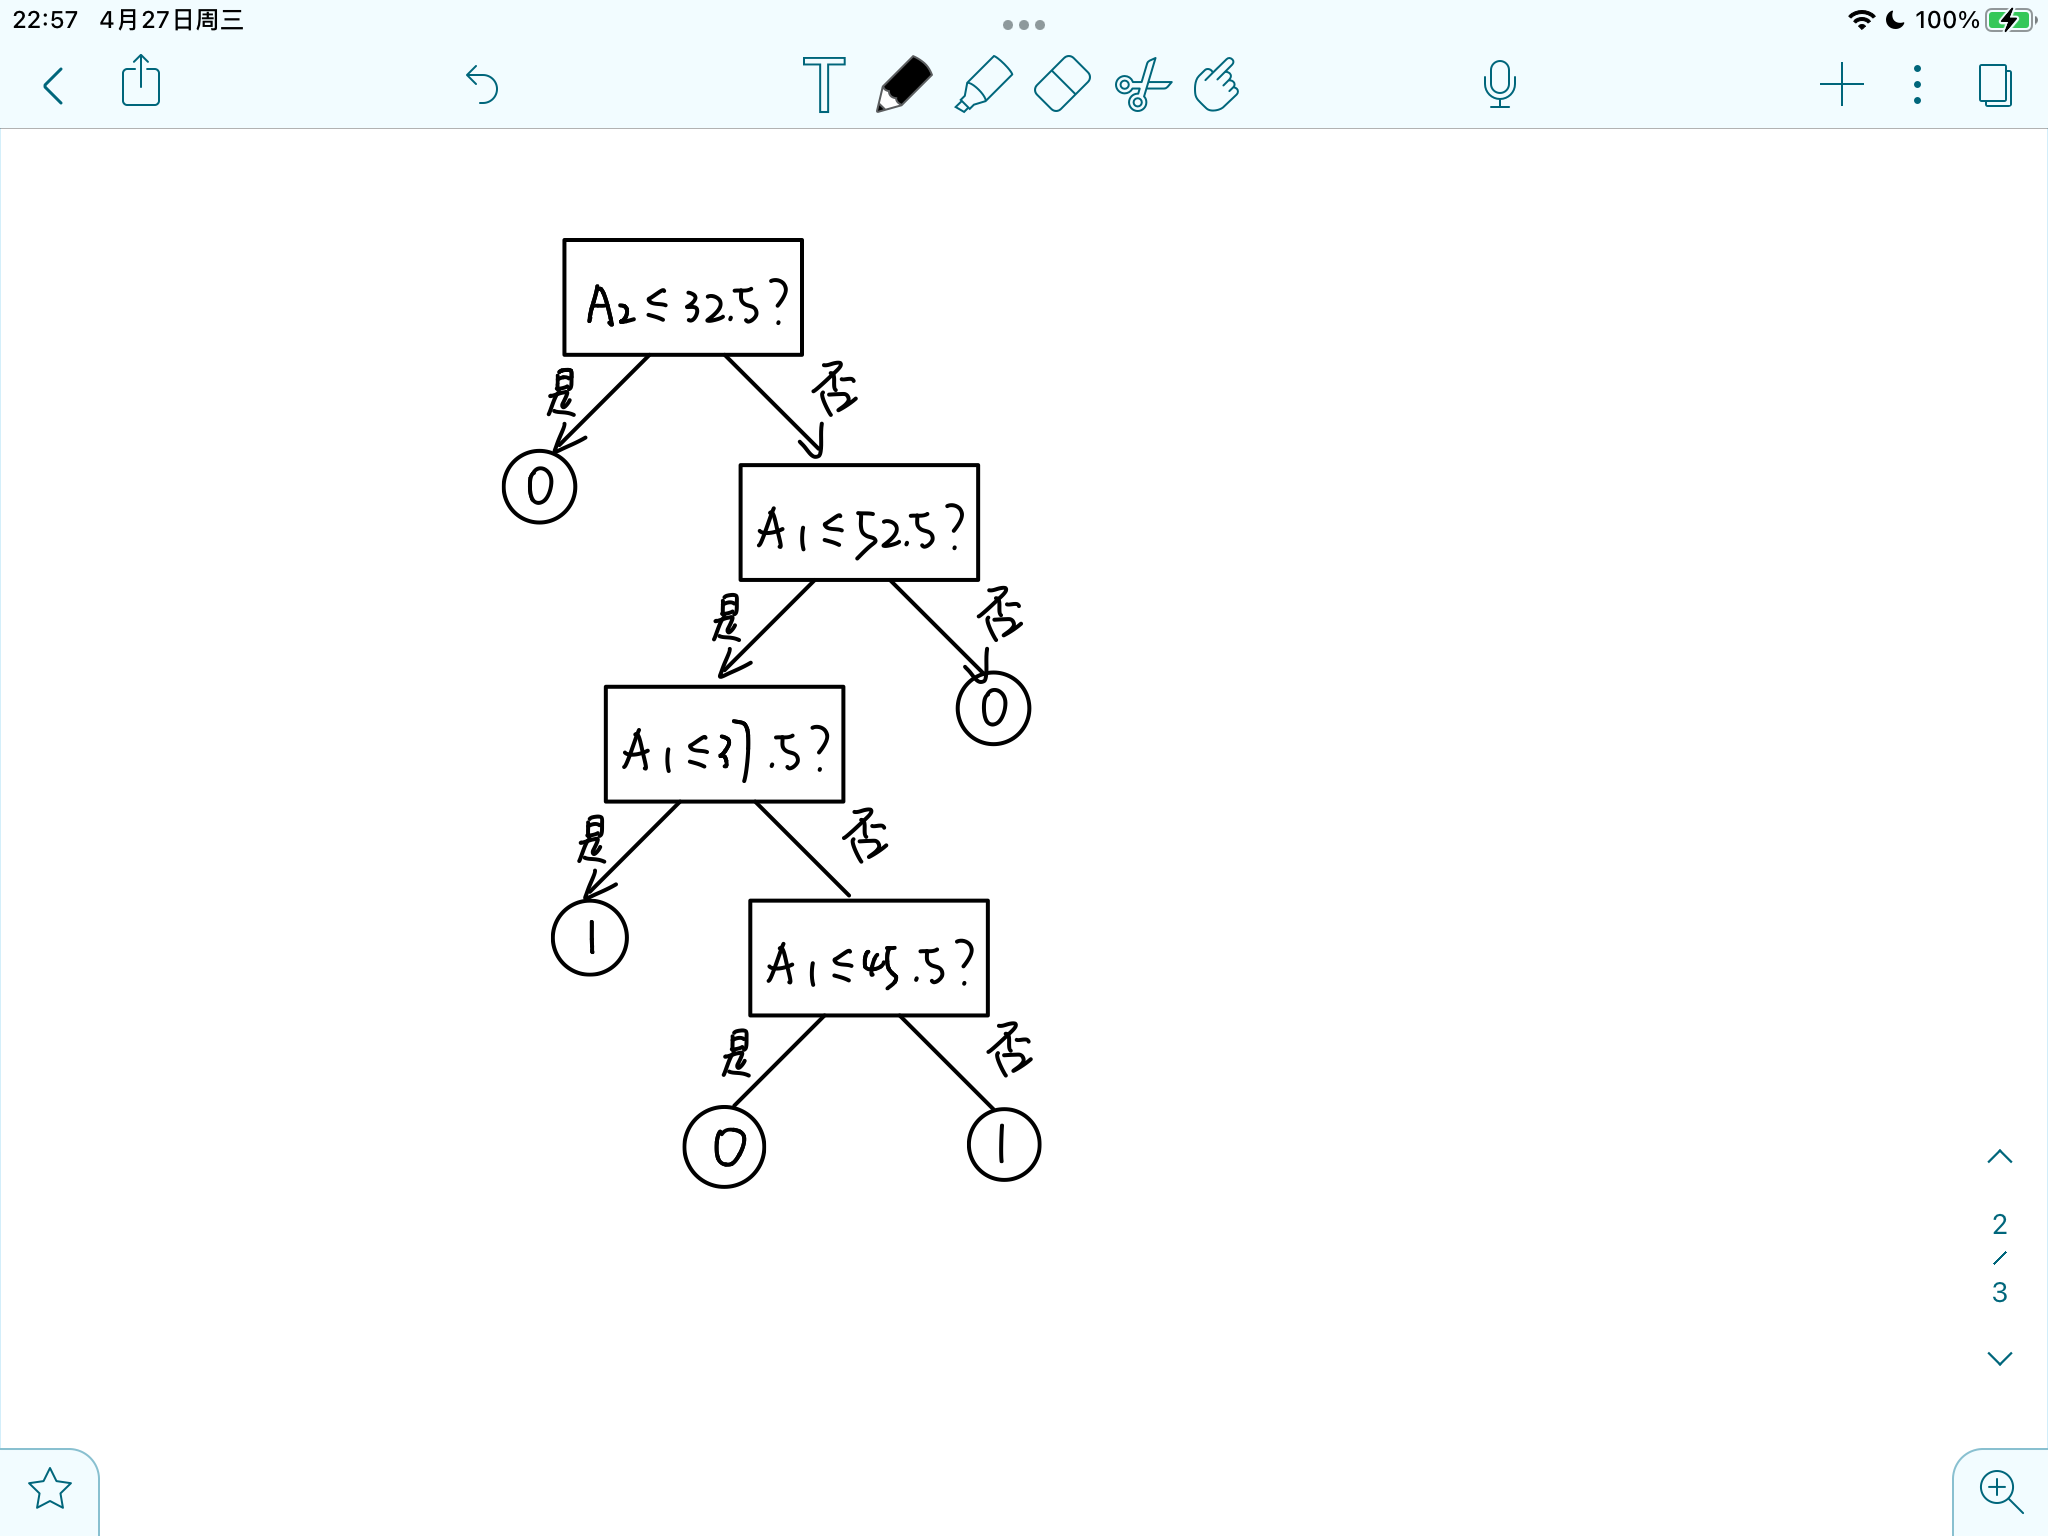 22:57 4月27日周三
100%
T
A2≤32.5?
是 否
0
A1≤52.5?
是 否
A1≤37.5?
0
是 否
1
A1≤45.5?
是 否
0 1
2
/
3